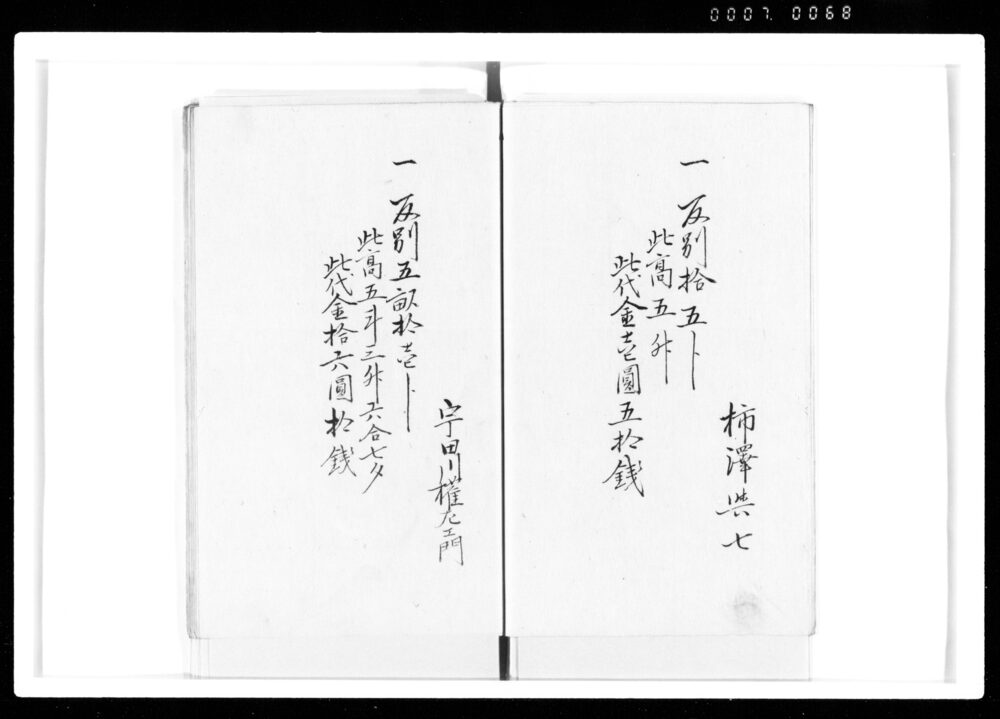 0007. 0068
柿澤與七
一 反別拾五卜
此高五升
此代金壱圓五拾銭
宇田川權左エ門
一 反別五畝拾壱卜
此高五斗三升六合七夕
此代金拾六圓拾銭